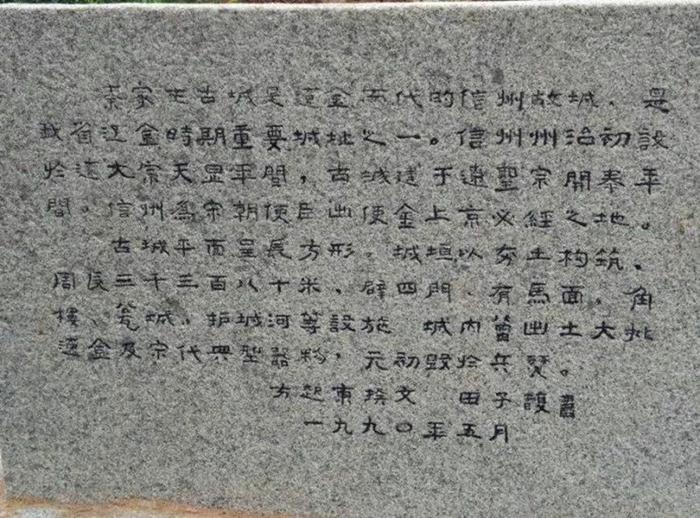 秦家屯古城是遼金两代的信州故城，是
我省辽金時期重要城址之一。信州州治初設
於遼大宗天显年間，古城建于遼聖宗開泰年
間。信州為宋朝使臣出使金上京必經之地。
古城平面呈長方形。城垣以夯土构筑，
周長三千三百八十米，辟四門，有馬面，角
樓、瓮城、护城河等設施。城内曾出土大批
遼金及宋代典型器物，元初毁於兵燹。
方起東撰文 田子馥書
一九九〇年五月